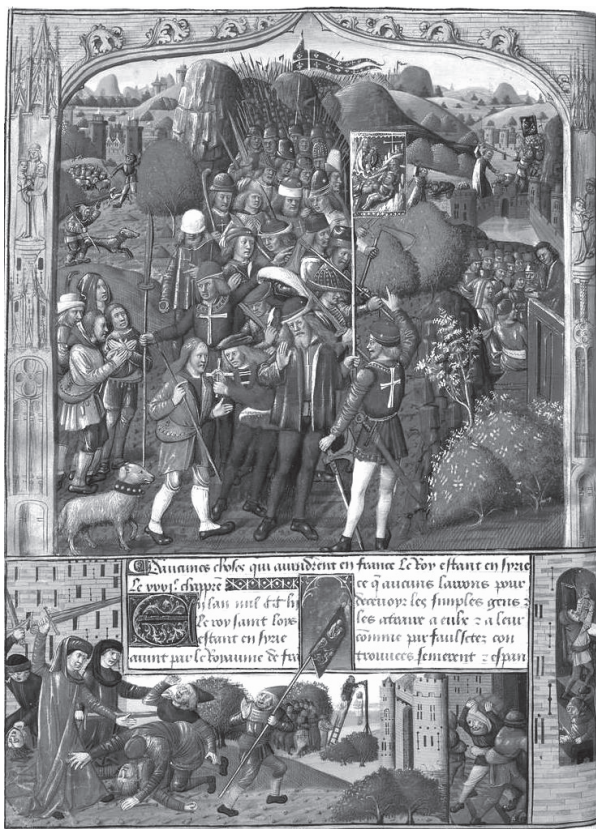 Daucunes choses qui avindrent en france Le Roy estant en syrie
Le xxvi.e chapre
En lan mil CC li
Le roy saint loys
estant en syrie
avint par le Royaume de fra
ce q aucuns larrons pour
decevoyr les simples gens z
les attraire a eulx z a leur
comune par faulsetez con
trouvees semerent z espan